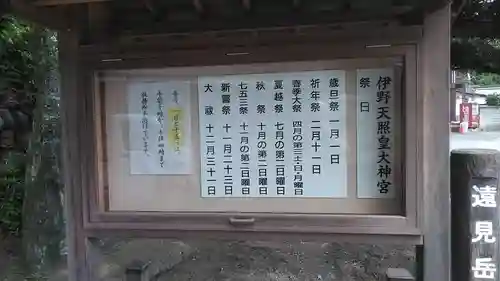 伊野天照皇大神宮
祭日
歳旦祭 一月一日
祈年祭 二月十一日
春季大祭 四月の第三土・日曜日
夏越祭 七月の第二日曜日
秋祭 十月の第二日曜日
七五三祭 十一月の第二日曜日
新嘗祭 十一月二十三日
大祓 十二月三十一日
遠見岳